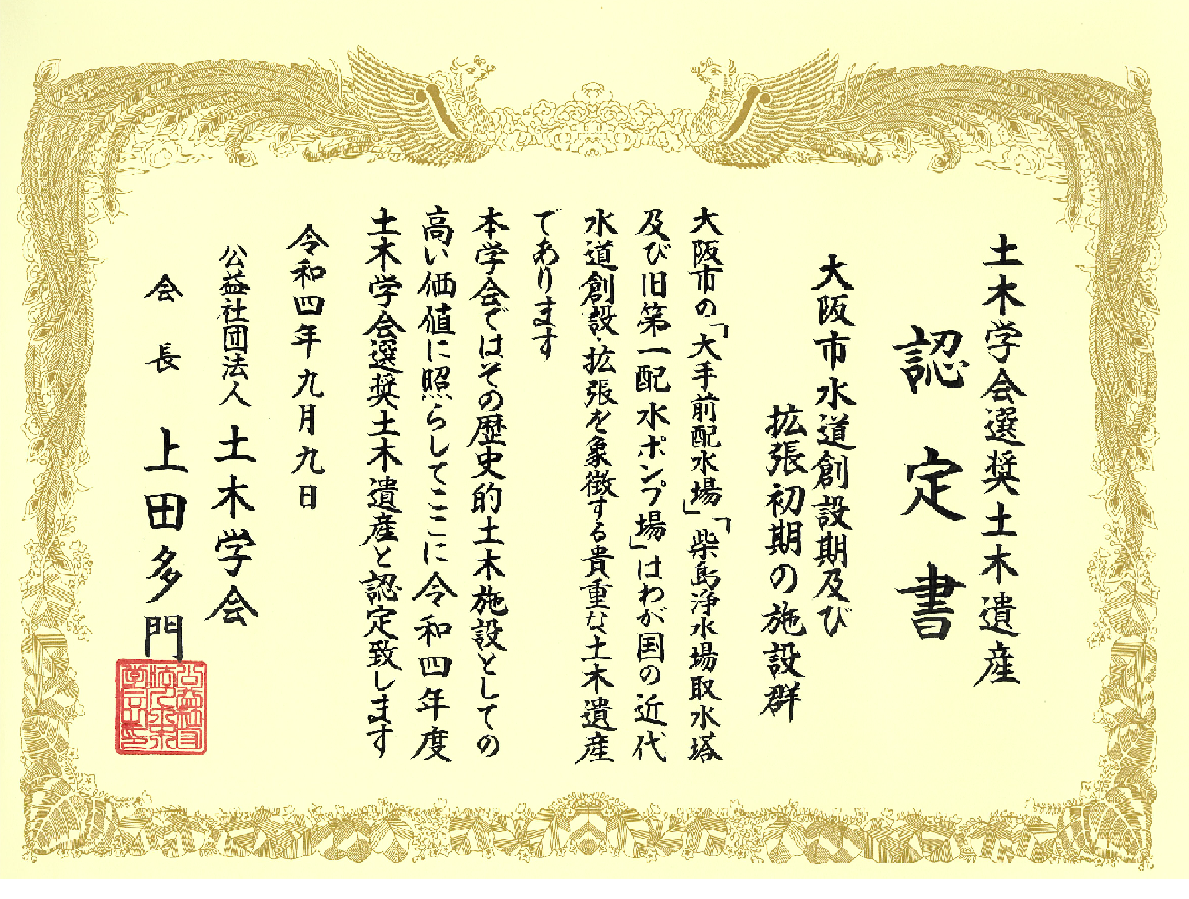 土木学会選奨土木遺産
認定書
大阪市水道創設期及び
拡張初期の施設群
大阪市の「大手前配水場」「柴島浄水場取水塔
及び旧第一配水ポンプ場」はわが国の近代
水道創設・拡張を象徴する貴重な土木遺産
であります
本学会ではその歴史的土木施設としての
高い価値に照らしてここに令和四年度
土木学会選奨土木遺産と認定致します
令和四年九月九日
公益社団法人 土木学会
会長 上田多門